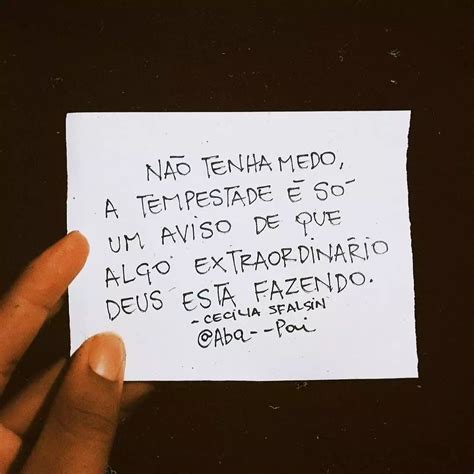 NÃO TENHA MEDO,
A TEMPESTADE É SÓ
UM AVISO DE QUE
ALGO EXTRAORDINÁRIO
DEUS ESTÁ FAZENDO.
- CECÍLIA SFALSIN
@Aba--Pai